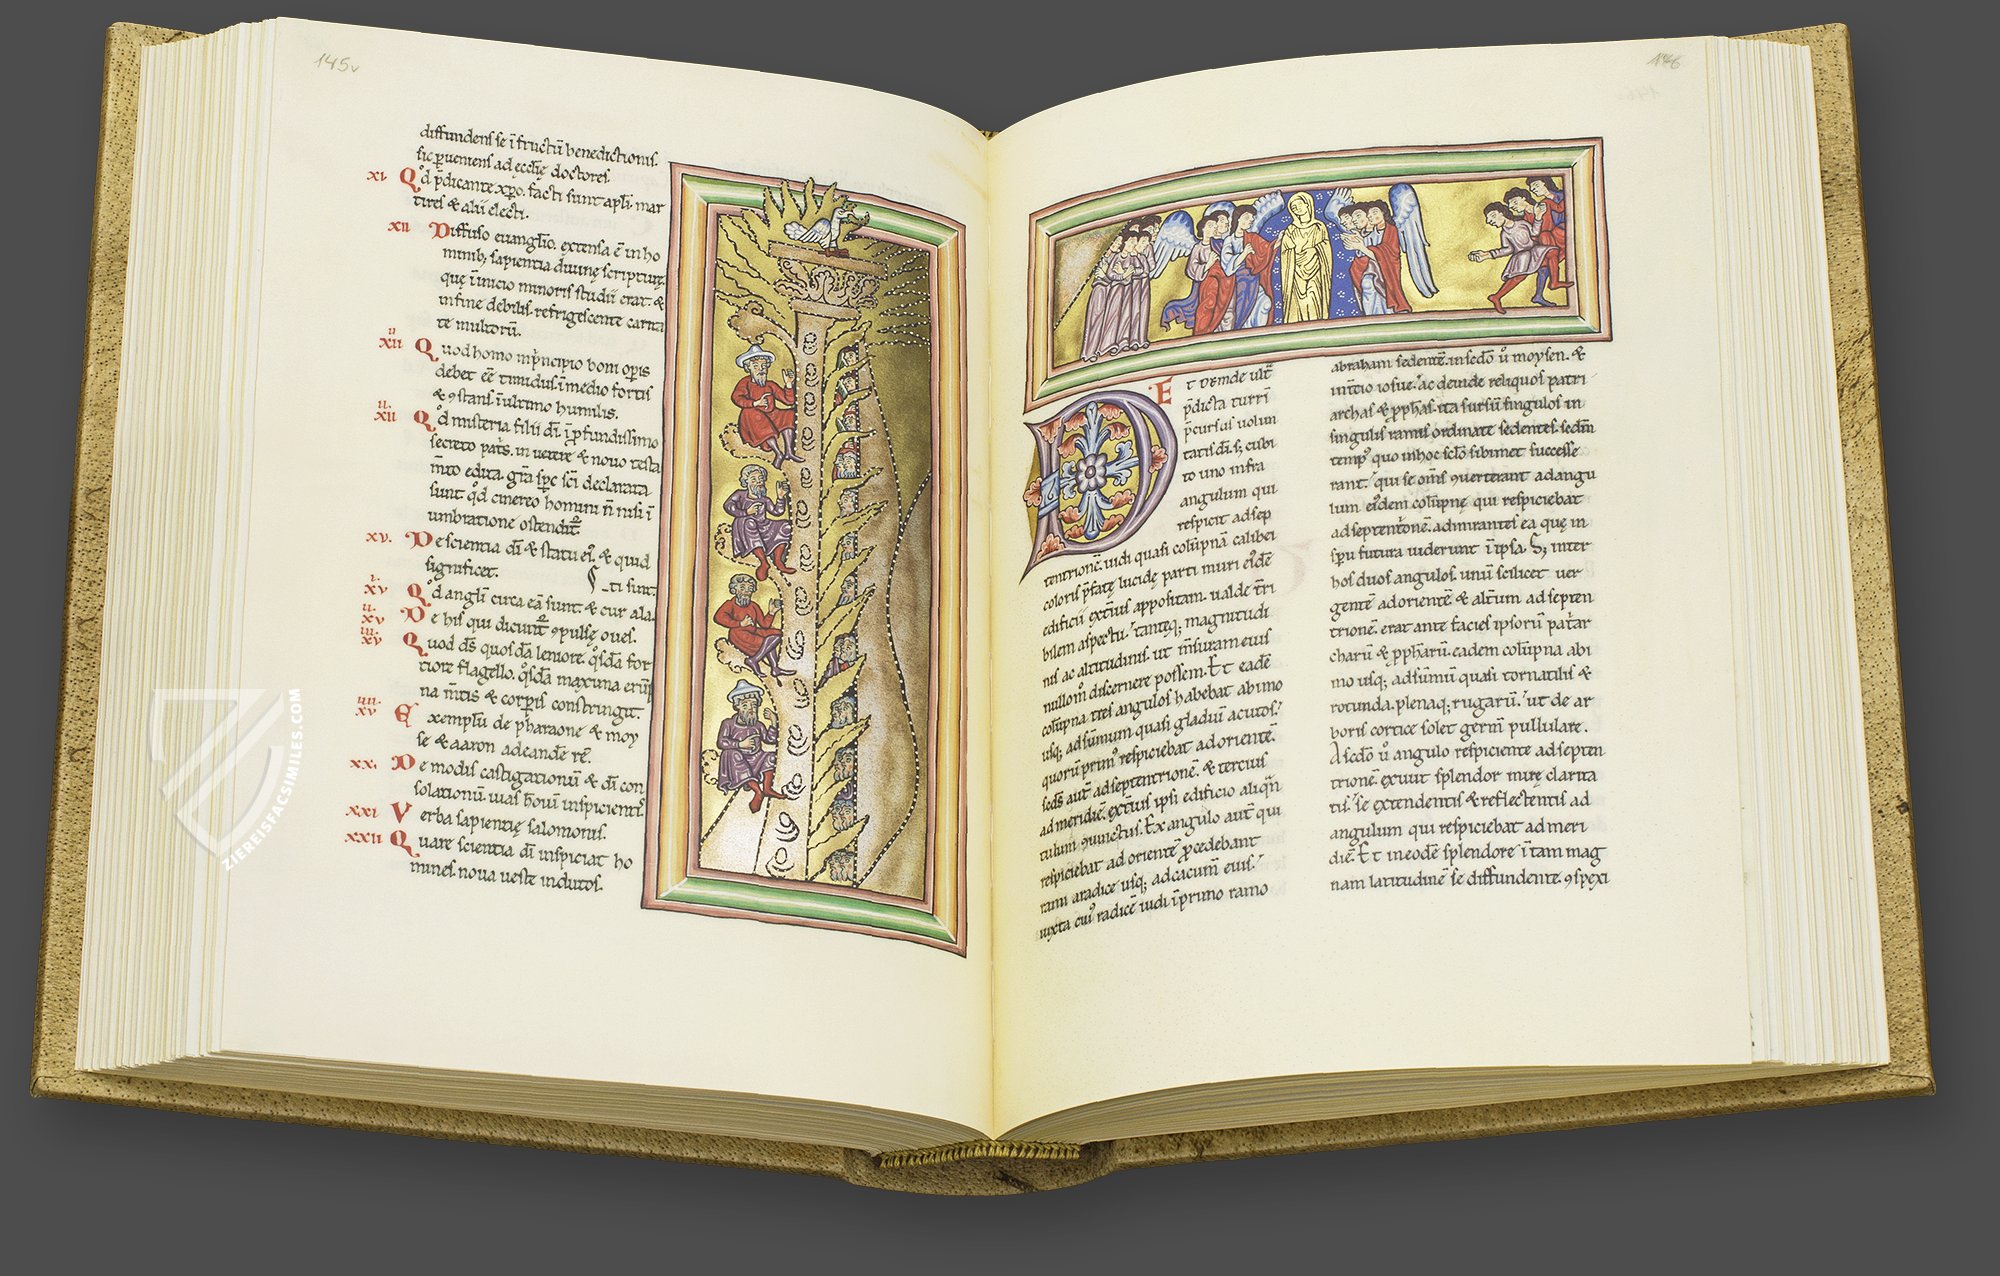 145v
diffundenſ ſe ī fructū benedictioniſ.
ſic ꝑuenienſ ad ęccłię doctoreſ.
xi. Qd p̄dicante xp̄o. facti ſunt apłi. mar
tireſ & alii electi.
xii Diffuſo euanglio. extenſa ē in ho
minib; ſapientia diuinę ſcripturę.
quę ī inicio minoriſ ſtudii erat. &
in fine debiliſ. refrigeſcente carita
te multorū.
xiii Quod homo in principio boni opiſ
debet eē timiduſ. ī medio fortiſ
& 9ſtanſ. ī ultimo humiliſ.
xiiii Qd miſteria filii dī. ī ꝓfundiſſimo
ſecreto pat̄ſ. in uetere & nouo teſta
m̄to edita. gr̄a ſp̄c ſc̄i declarata
ſunt. qd cinereo homini n̄ niſi ī
umbratione oſtendit̄.
xv. De ſcientia dī & ſtatu ei. & quid
ſignificet.
ti ſunt
xvi Qd angłi circa eā ſunt & cur ala
xvii De hiſ qui dicunt̄ 9pulſę oueſ.
xviii Quod dſ quoſdā leniore. qſdā for
tiore flagello. qſdā maxima erūp
na m̄tiſ & corporiſ conſtringit.
xviiii Exemplū de pharaone & moy
ſe & aaron ad eandē rē.
xx. De modiſ caſtigationū & dī con
ſolationū. uiaſ hōuī inſpicientiſ.
xxi Verba ſapientię ſalomoniſ.
xxii Quare ſcientia dī inſpiciat ho
mineſ. noua ueſte indutoſ.
ZIEREISFACSIMILES.COM
146
ET DEINDE ult̄
p̄dicta turri
p̄curſuſ uolun
tatiſ dī. ſ; cubi
to uno infra
angulum qui
reſpicit ad ſep
tentrionē. uidi quaſi colūpnā calibei
coloriſ. p̄fatę lucidę parti muri eidē
edificii ext̄iuſ appoſitam. ualde t̄ri
bilem aſpectu. tanteq; magnitudi
niſ ac altitudiniſ. ut m̄ſuram eiuſ
nullom̊ diſcernere poſſem. Et eadē
colūpna treſ anguloſ habebat ab imo
uſq; ad ſūmum quaſi gladiuī acutoſ.
quorū prim reſpiciebat ad orientē.
ſedſ aut̄ ad ſeptentrionē. & terciuſ
ad meridiē. ext̄iuſ ipſi edificio aliqn̄
tulum 9iunctuſ. Ex angulo aut̄ qui
reſpiciebat ad orientē ꝓcedebant
rami a radice uſq; ad cacum̄ eiuſ.
iuxta cui radicē uidi ī primo ramo
abraham ſedentē. in ſecdo u̇ moyſen. &
in t̄cio ioſue. ac deinde reliquoſ patri
archaſ & ꝓphaſ. ita ſurſū ſinguloſ in
ſinguliſ ramiſ ordinate ſedenteſ. ſcdm̄
temp quo in hoc ſclo ſibimet ſucceſſe
rant. qui ſe om̄ſ 9uerterant ad angu
lum eidem colūpnę qui reſpiciebat
ad ſeptentrionē. admiranteſ ea quę in
ſpu futura uiderunt ī ipſa. S; inter
hoſ duoſ anguloſ. unū ſcilicet uer
gentē ad orientē & alterum ad ſepten
trionē. erat ante facieſ ipſorū pat̄ar
charū & ꝓphārū. eadem colūpna ab i
mo uſq; ad ſūmū quaſi tornatiliſ &
rotunda. plenaq; rugarū. ut de ar
boriſ cortice ſolet germ̄ pullulare.
A ſecdo u̇ angulo reſpiciente ad ſepten
trionē. exiuit ſplendor mirę clarita
tiſ. ſe extendentiſ & reflectentiſ ad
angulum qui reſpiciebat ad meri
diē. Et in eodē ſplendore ī tam mag
nam latitudinē ſe diffundente. 9ſpexi